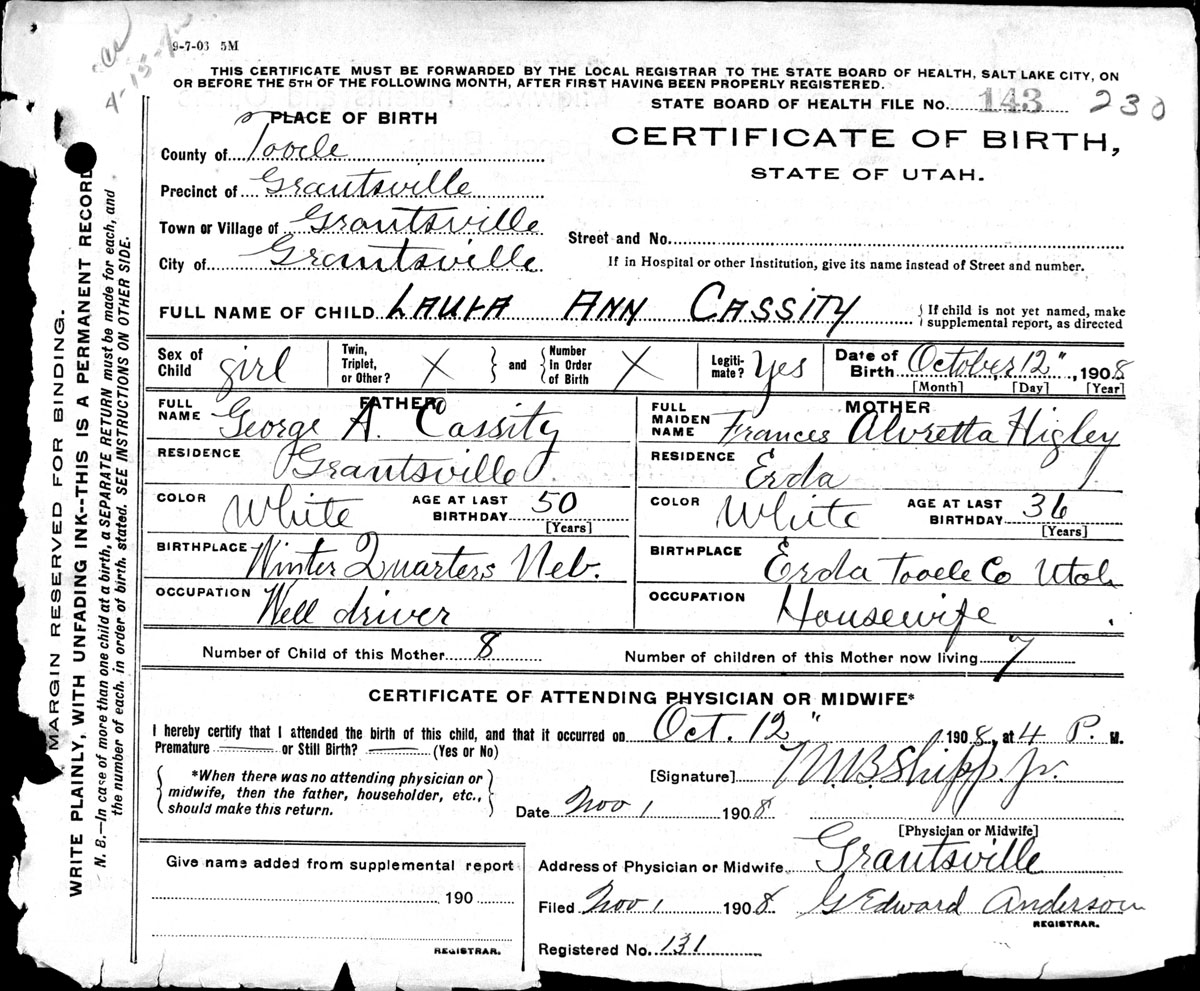 9-7-03 5M
THIS CERTIFICATE MUST BE FORWARDED BY THE LOCAL REGISTRAR TO THE STATE BOARD OF HEALTH, SALT LAKE CITY, ON
OR BEFORE THE 5TH OF THE FOLLOWING MONTH, AFTER FIRST HAVING BEEN PROPERLY REGISTERED.
STATE BOARD OF HEALTH FILE No. 143 230
PLACE OF BIRTH
CERTIFICATE OF BIRTH,
STATE OF UTAH.
County of Tooele
Precinct of Grantsville
Town or Village of Grantsville
Street and No.
City of Grantsville
If in Hospital or other Institution, give its name instead of Street and number.
FULL NAME OF CHILD LAURA ANN CASSITY { If child is not yet named, make supplemental report, as directed
Sex of Child girl Twin, Triplet, or Other? X } and { Number in Order of Birth X Legiti-mate? Yes Date of Birth October 12", 1908
[Month] [Day] [Year]
FATHER
FULL NAME George A. Cassity
RESIDENCE Grantsville
COLOR White AGE AT LAST BIRTHDAY 50
[Years]
BIRTHPLACE Winter Quarters Neb.
OCCUPATION Well driver
MOTHER
FULL MAIDEN NAME Frances Alvretta Higley
RESIDENCE Erda
COLOR White AGE AT LAST BIRTHDAY 36
[Years]
BIRTHPLACE Erda Tooele Co Utah
OCCUPATION Housewife
Number of Child of this Mother 8 Number of children of this Mother now living 7
CERTIFICATE OF ATTENDING PHYSICIAN OR MIDWIFE*
I hereby certify that I attended the birth of this child, and that it occurred on Oct. 12" 1908, at 4 P. M.
Premature —— or Still Birth? —— (Yes or No)
{ *When there was no attending physician or
midwife, then the father, householder, etc.,
should make this return. }
[Signature] M.B. Shipp. Jr.
Date Nov 1 1908
[Physician or Midwife]
Give name added from supplemental report
190
REGISTRAR.
Address of Physician or Midwife Grantsville
Filed Nov 1 1908 G Edward Anderson
REGISTRAR.
Registered No. 131
MARGIN RESERVED FOR BINDING.
WRITE PLAINLY, WITH UNFADING INK--THIS IS A PERMANENT RECORD
N. B.—In case of more than one child at a birth, a SEPARATE RETURN must be made for each, and
the number of each, in order of birth, stated. SEE INSTRUCTIONS ON OTHER SIDE.